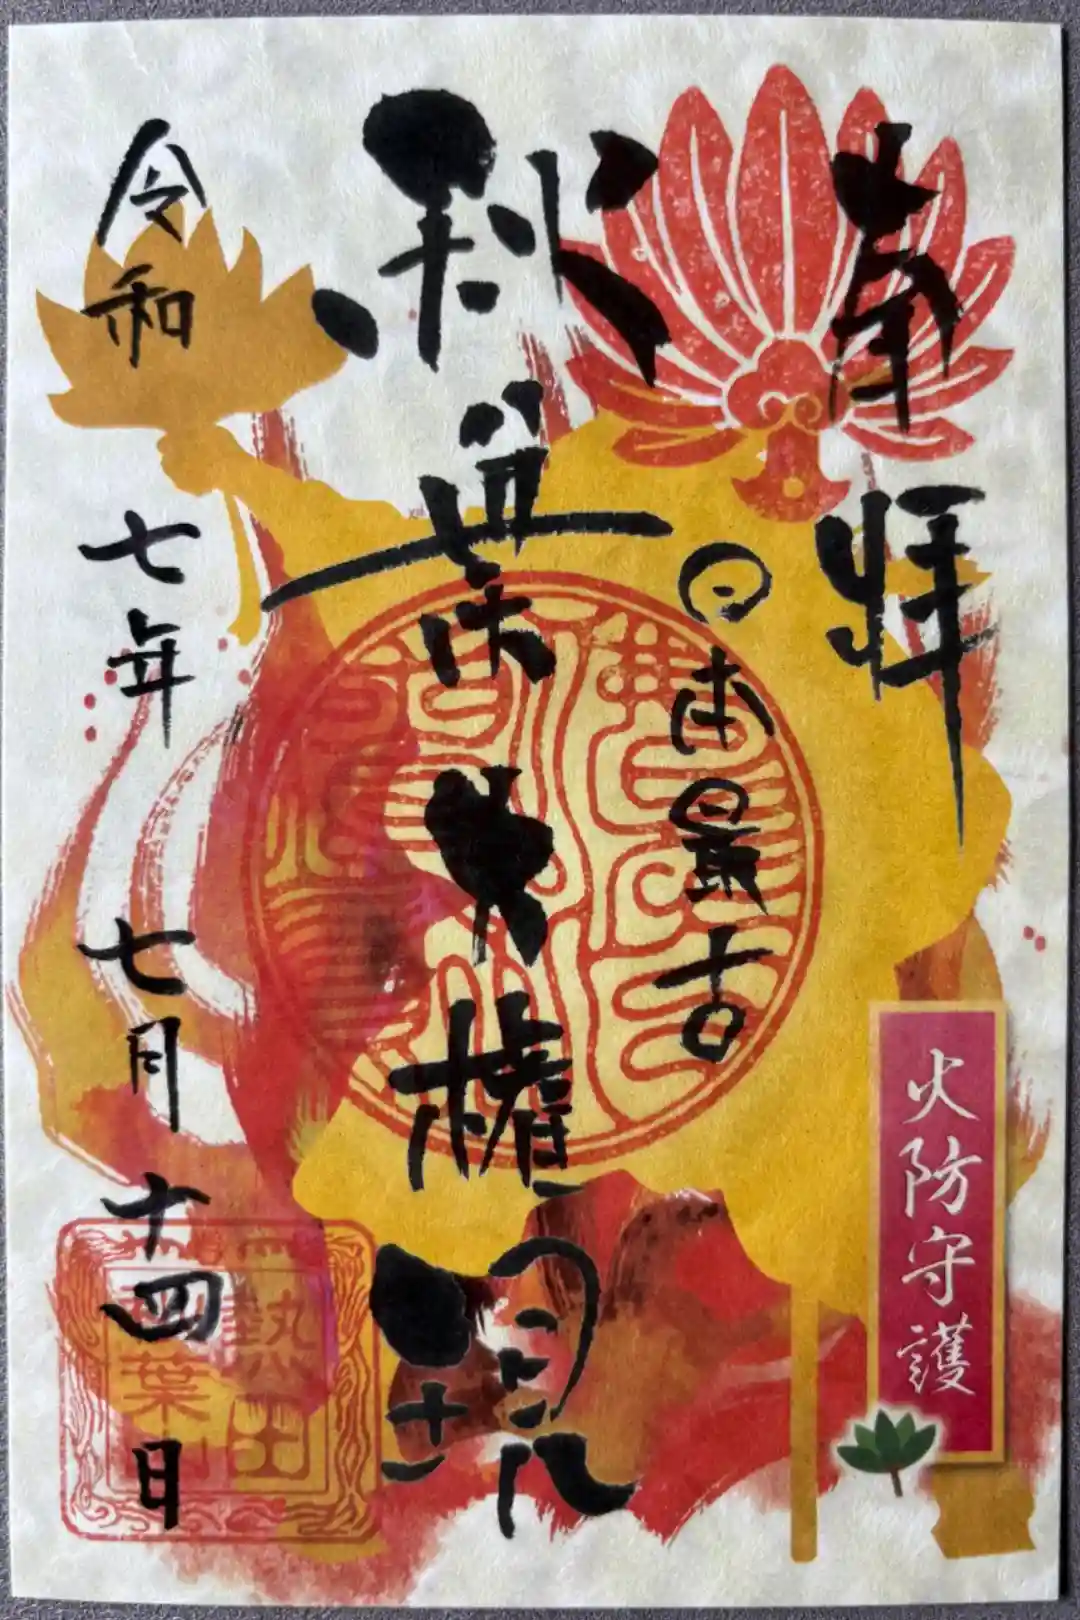 奉拝
日本最古
秋葉大権現
令和七年七月十四日
火防守護
熱田